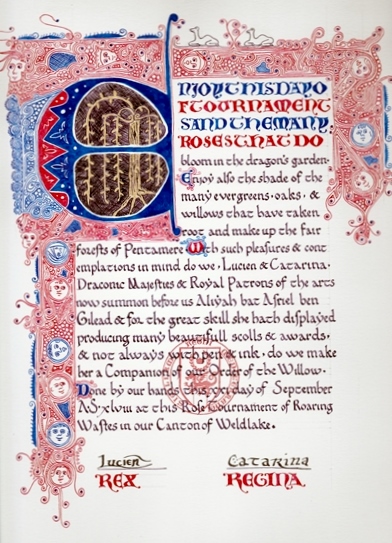 ENJOY THIS DAY O
F TOURNAMENT
S AND THE MANY
ROSES THAT DO
bloom in the dragon's garden.
Enjoy also the shade of the
many evergreens, oaks, &
willows that have taken
root and make up the fair
forests of Pentamere. With such pleasures & cont
emplations in mind do we, Lucien & Catarina,
Draconic Majesties & Royal Patrons of the arts
now summon before us Aliyah bat Asriel ben
Gilead & for the great skill she hath displayed
producing many beautifull scolls & awards,
& not always with pen & ink, do we make
her a Companion of our Order of the Willow.
Done by our hands this day of September
ASxlviii at this Rose Tournament of Roaring
Wastes in our Canton of Weldlake.
Lucien Catarina
REX. REGINA.